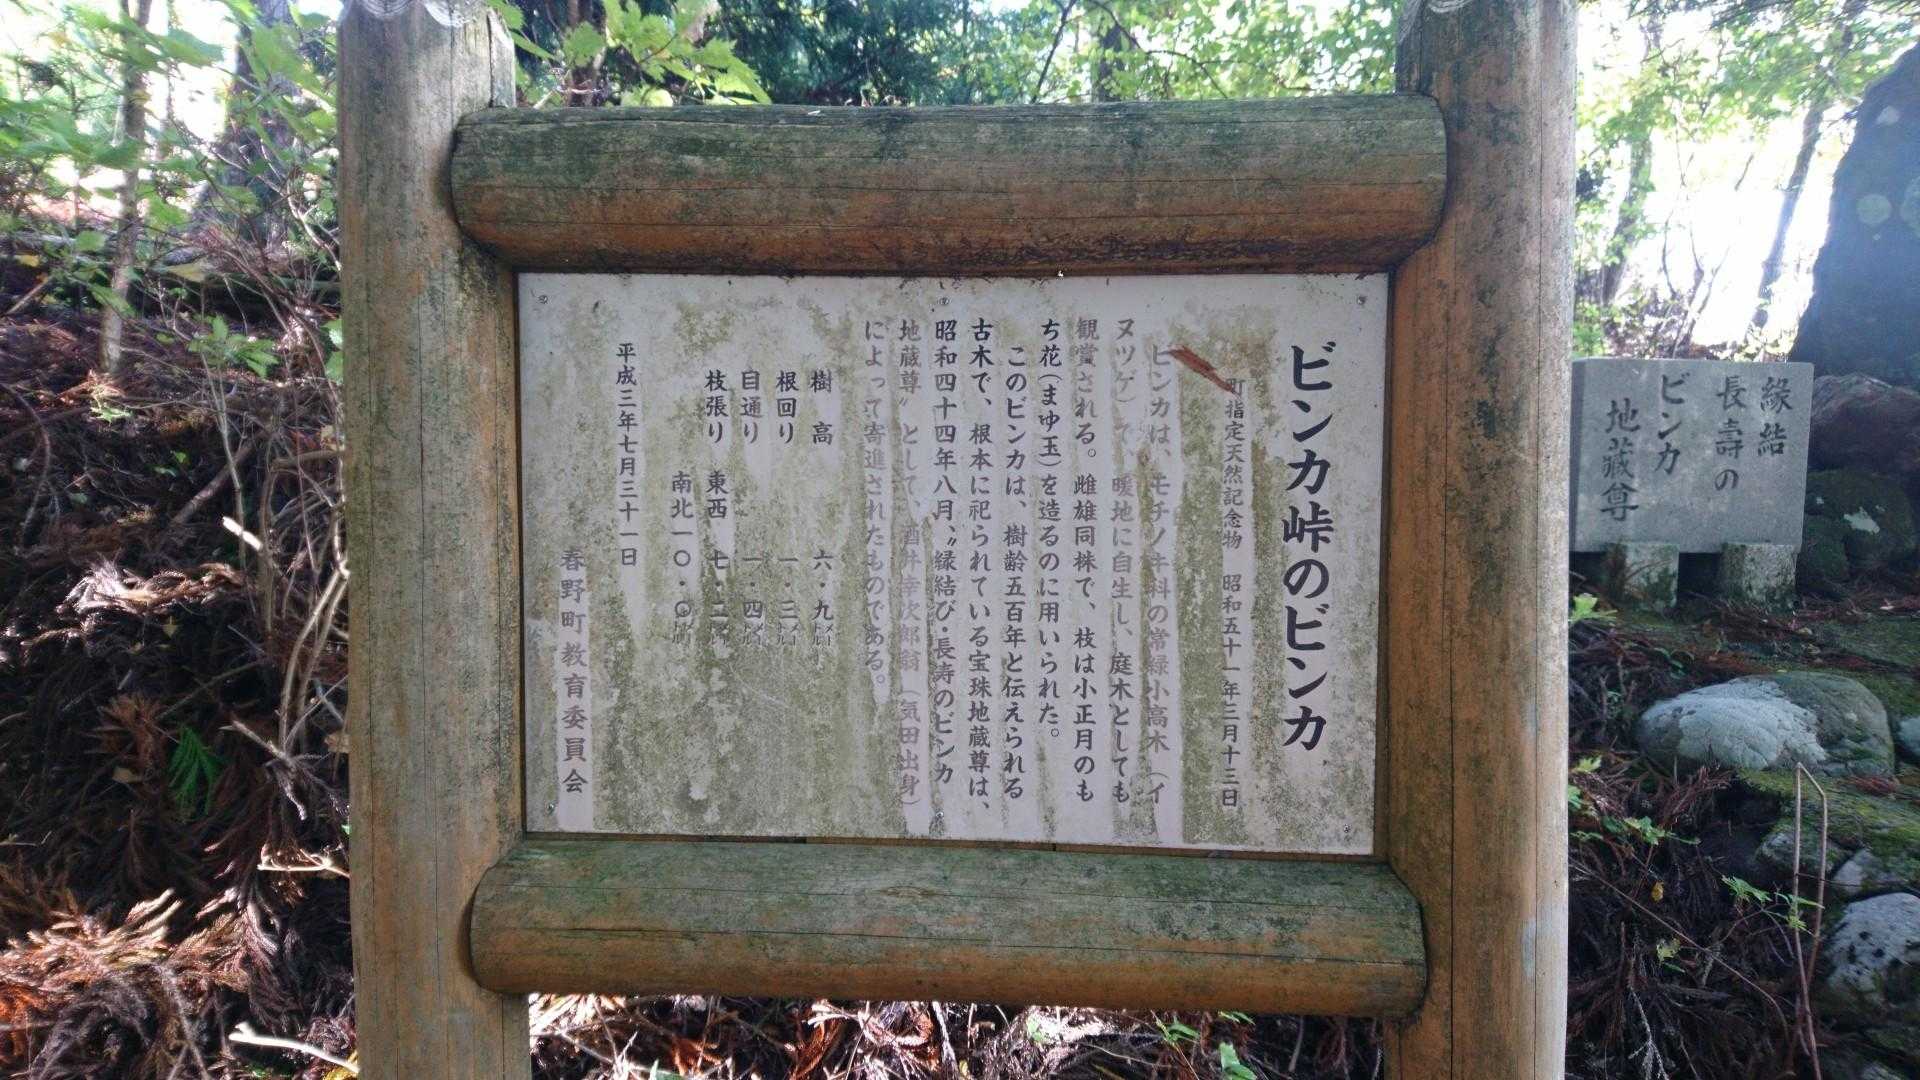 ビンカ峠のビンカ
町指定天然記念物 昭和五十一年三月十三日
ビンカは、モチノキ科の常緑小高木(イ
ヌツゲ)で、暖地に自生し、庭木としても
観賞される。雌雄同株で、枝は小正月のも
ち花(まゆ玉)を造るのに用いられた。
このビンカは、樹齢五百年と伝えられる
古木で、根本に祀られている宝珠地蔵尊は、
昭和四十四年八月、〝縁結び・長寿のビンカ
地蔵尊〟として、酒井幸次郎翁(気田出身)
によって寄進されたものである。
樹高 六・九㍍
根回り 一・三㍍
目通り 一・四㍍
枝張り 東西 七・二㍍
南北一〇・〇㍍
平成三年七月三十一日
春野町教育委員会
縁結
長壽の
ビンカ
地蔵尊